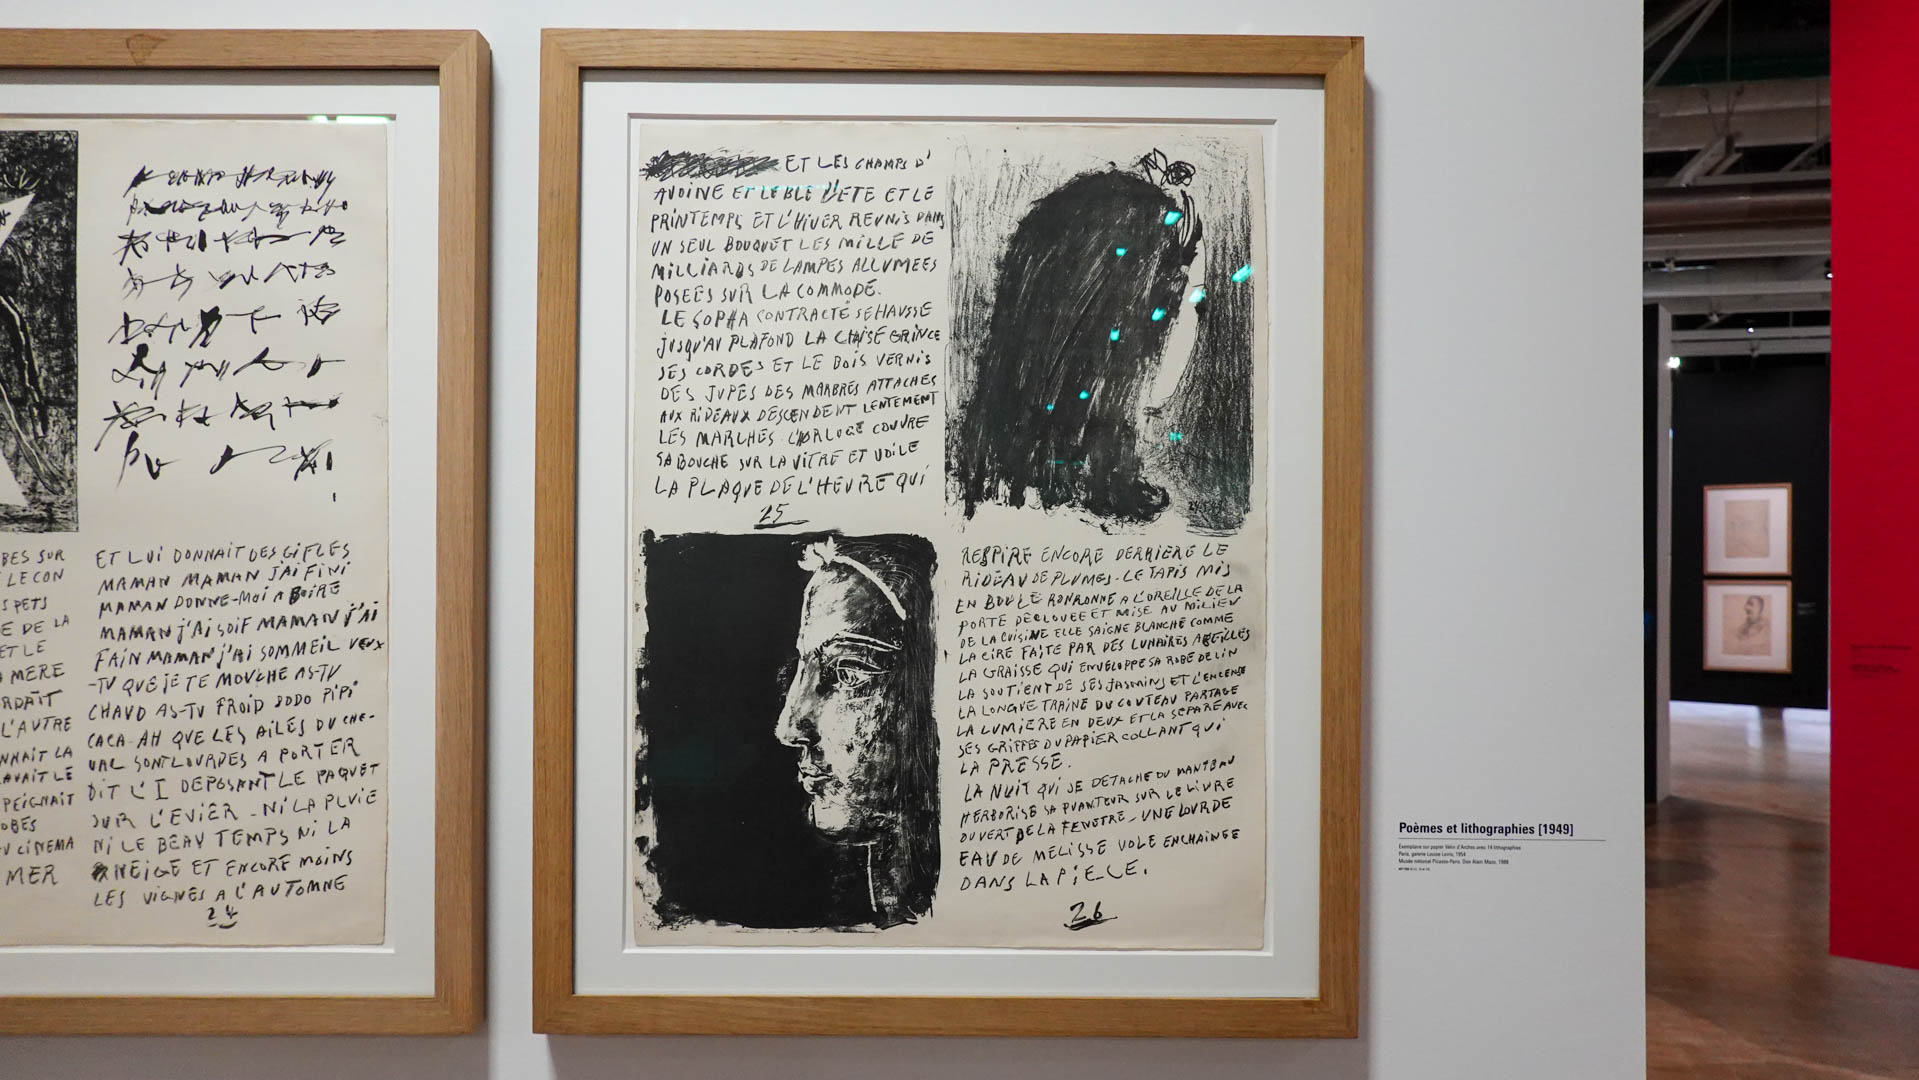 BES SUR
LE CON
S PETS
E DE LA
ET LE
MERE
RDAIT
L'AUTRE
NNAIT LA
AVAIT LE
PEIGNAIT
OBES
U CINEMA
MER
ET LUI DONNAIT DES GIFLES
MAMAN MAMAN J'AI FINI
MAMAN DONNE-MOI A BOIRE
MAMAN J'AI SOIF MAMAN J'AI
FAIN MAMAN J'AI SOMMEIL VEUX
-TU QUE JE TE MOUCHE AS-TU
CHAUD AS-TU FROID DODO PIPI
CACA-AH QUE LES AILES DU CHE-
VAL SONT LOURDES A PORTER
DIT L'I DEPOSANT LE PAQUET
SUR L'EVIER - NI LA PLUIE
NI LE BEAU TEMPS NI LA
NEIGE ET ENCORE MOINS
LES VIGNES A L'AUTOMNE
24
ET LES CHAMPS D'
AVOINE ET LE BLE L'ETE ET LE
PRINTEMPS ET L'HIVER REUNIS DANS
UN SEUL BOUQUET LES MILLE DE
MILLIARDS DE LAMPES ALLUMEES
POSEES SUR LA COMMODE.
LE SOPHA CONTRACTÉ SE HAUSSE
JUSQU'AU PLAFOND LA CHAISE GRINCE
SES CORDES ET LE BOIS VERNIS
DES JUPES DES MARBRES ATTACHES
AUX RIDEAUX DESCENDENT LENTEMENT
LES MARCHES - L'HORLOGE COUVRE
SA BOUCHE SUR LA VITRE ET VOILE
LA PLAQUE DE L'HEURE QUI
25
RESPIRE ENCORE DERRIERE LE
RIDEAU DE PLUMES - LE TAPIS MIS
EN BOULE RONRONNE A L'OREILLE DE LA
PORTE DECLOUEE ET MISE AU MILIEU
DE LA CUISINE ELLE SAIGNE BLANCHE COMME
LA CIRE FAITE PAR DES LUNAIRES ABEILLES
LA GRAISSE QUI ENVELOPPE SA ROBE DE LIN
LA SOUTIENT DE SES JASMINS ET L'ENCENSE
LA LONGUE TRAINE DU COUTEAU PARTAGE
LA LUMIERE EN DEUX ET LA SEPARE AVEC
SES GRIFFES DU PAPIER COLLANT QUI
LA PRESSE.
LA NUIT QUI SE DETACHE DU MANTEAU
HERBORISE SA PUANTEUR SUR LE LIVRE
OUVERT DE LA FENETRE - UNE LOURDE
EAU DE MELISSE VOLE ENCHAINEE
DANS LA PIECE.
26
Poèmes et lithographies [1949]
Exemplaire sur papier Vélin d'Arches avec 14 lithographies
Paris, galerie Louise Leiris, 1954
Musée national Picasso-Paris. Don Alain Mazo, 1988